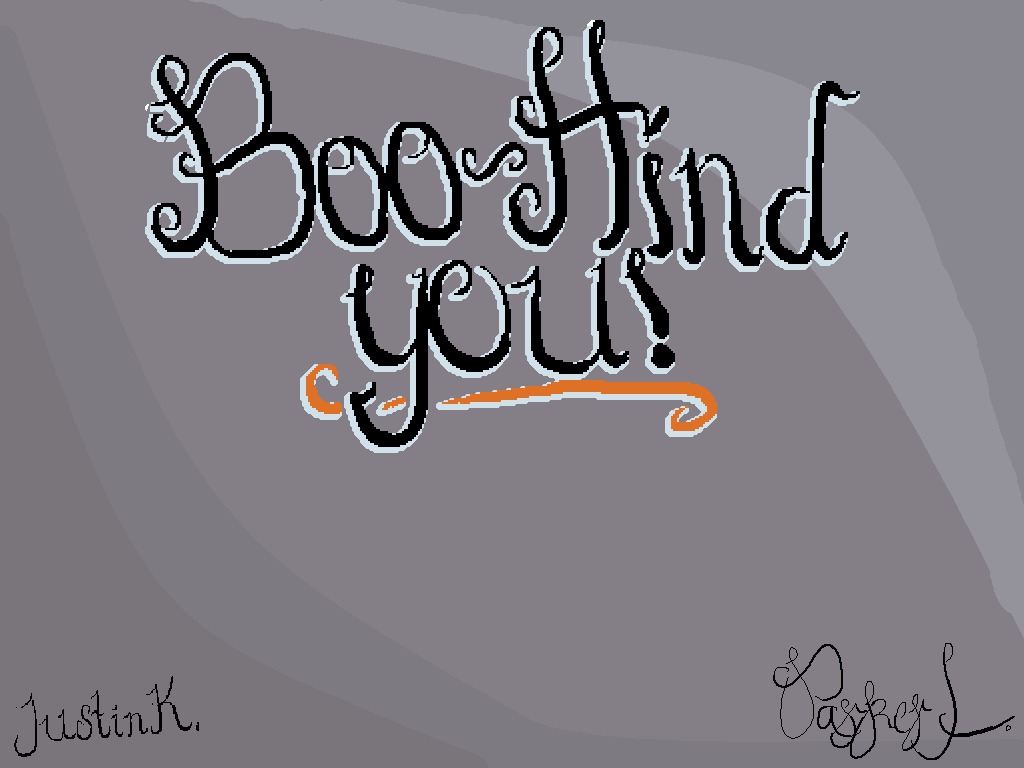 Boo~Hind
you!
Justin K.
Parker L.